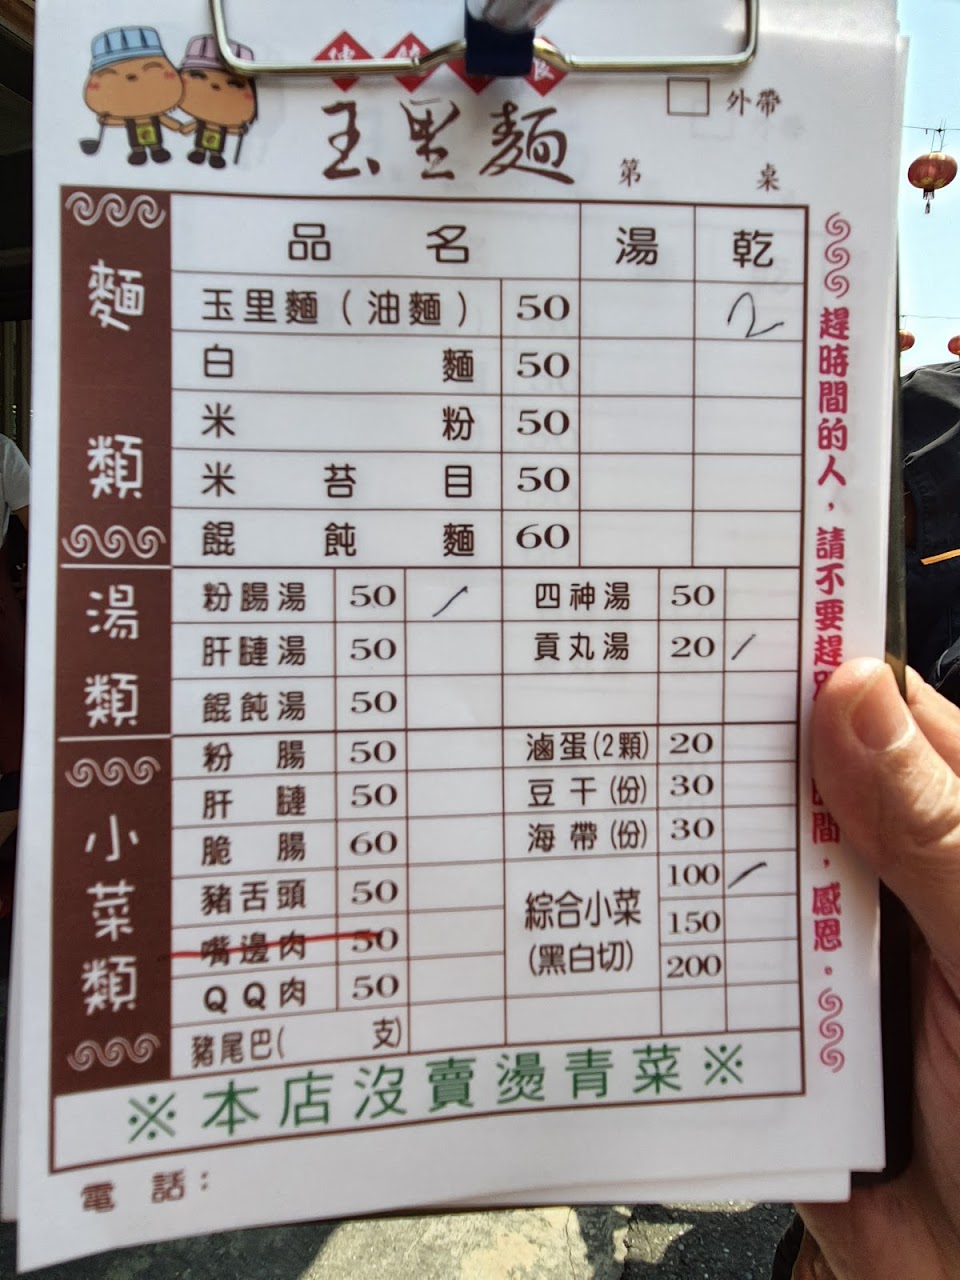 玉里麵
外帶
第 桌
麵類
品名 湯 乾
玉里麵(油麵) 50 2
白麵 50
米粉 50
米苔目 50
餛飩麵 60
湯類
粉腸湯 50 / 四神湯 50
肝膁湯 50 貢丸湯 20 /
餛飩湯 50
小菜類
粉腸 50 滷蛋(2顆) 20
肝膁 50 豆干(份) 30
脆腸 60 海帶(份) 30
豬舌頭 50 綜合小菜(黑白切) 100 /
嘴邊肉 50 150
QQ肉 50 200
豬尾巴( 支)
※本店沒賣燙青菜※
電話：
趕時間的人，請不要趕
時間，感恩。